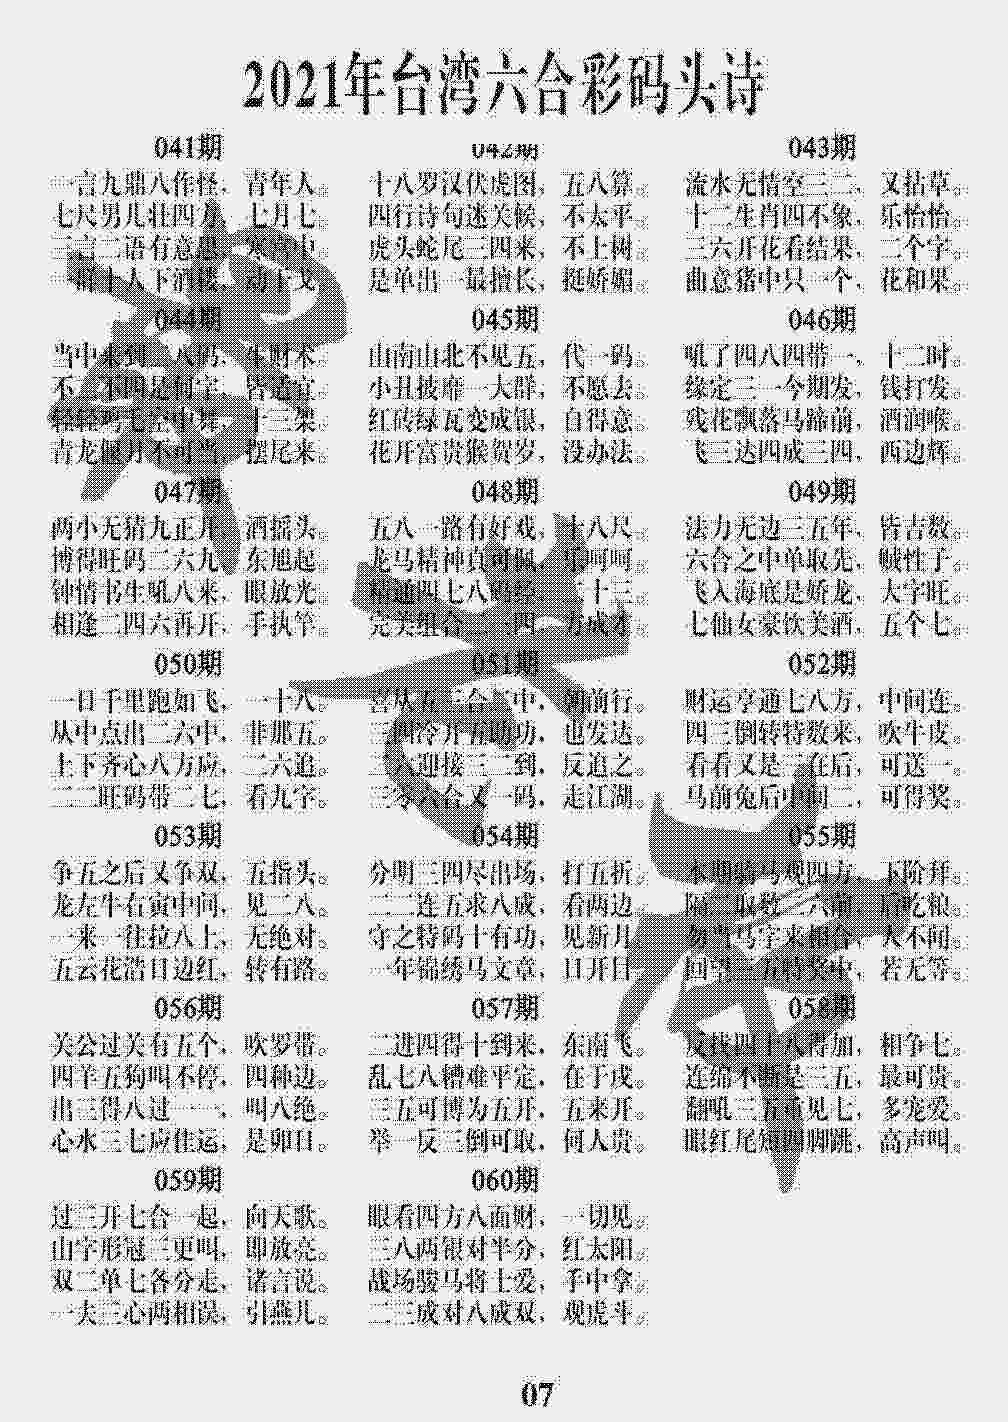 2021年台湾六合彩码头诗
041期
一言九鼎八作怪，青年人。
七尺男儿壮四方，七月七。
三言二语有意思，
一群十人下酒楼，动干戈
042期
十八罗汉伏虎图，五八算。
四行诗句迷关候，不太平。
虎头蛇尾三四来，不上树。
是单出一最擅长，挺娇媚。
043期
流水无情空三二，又拈草。
十二生肖四不象，乐怡怡。
三六开花看结果，二个字。
曲意猪中只一个，花和果。
044期
当中来到二八码，生财术。
不三不四是何字，皆适宜。
轻轻鸣七空中舞，十三架。
青龙偃月不可当，摆尾来。
045期
山南山北不见五，代一码。
小丑披靡一大群，不愿去。
红砖绿瓦变成银，自得意。
花开富贵猴贺岁，没办法。
046期
吼了四八四带一，十二时。
缘定三一今期发，钱打发。
残花飘落马蹄前，酒润喉。
飞三达四成三四，西边辉。
047期
两小无猜九正开，酒摇头。
博得旺码二六九，东旭起。
钟情书生吼八来，眼放光。
相逢二四六再开，手执笔。
048期
五八一路有好戏，十八尺。
龙马精神真可佩，乐呵呵。
精通四七八 二十三。
完美组合 四 方成才。
049期
法力无边三五年，皆吉数。
六合之中单取先，贼性子。
飞入海底是娇龙，大字旺。
七仙女豪饮美酒，五个七。
050期
一日千里跑如飞，一十八。
从中点出二六中，非那五。
上下齐心八方应，二六追。
二二旺码带二七，看九字。
051期
喜从五三合 中，朝前行。
三四冷开五助功，也发达。
二六迎接三二到，反追之。
三零六合又一码，走江湖。
052期
财运亨通七八方，中间连。
四三倒转特数来，吹牛皮。
看看又是三在后，可送一。
马前兔后中间二，可得奖。
053期
争五之后又争双，五指头。
龙左牛右寅中间，见二八。
一来一往拉八上，无绝对。
五云花浩日边红，转有路。
054期
分明三四尽出场，打五折。
二二连五求八成，看两边。
守之特码十有功，见新月。
一年锦绣马文章，日开日。
055期
本期骑马观四方，下阶拜。
取数二六前，看吃粮。
勿当马字来相合，人不闻。
回望三五特奖中，若无等。
056期
关公过关有五个，吹罗带。
四羊五狗叫不停，四种边。
出三得八过一一，叫八绝。
心水三七应住运，是卯日。
057期
二进四得十到来，东南飞。
乱七八糟难平定，在于戌。
三五可博为五开，五来开。
举一反三倒可取，何人贵。
058期
反找四十八得加，相争七。
连绵不断是三五，最可贵。
翻吼三五看见七，多宠爱。
眼红尾短四脚跳，高声叫。
059期
过三开七合一起，向天歌。
山字形冠三更叫，即放亮。
双二单七各分走，诸言说。
一夫三心两相误，引燕儿。
060期
眼看四方八面财，一切见。
三八两银对半分，红太阳。
战场骏马将士爱，手中拿。
二三成对八成双，观虎斗。
07